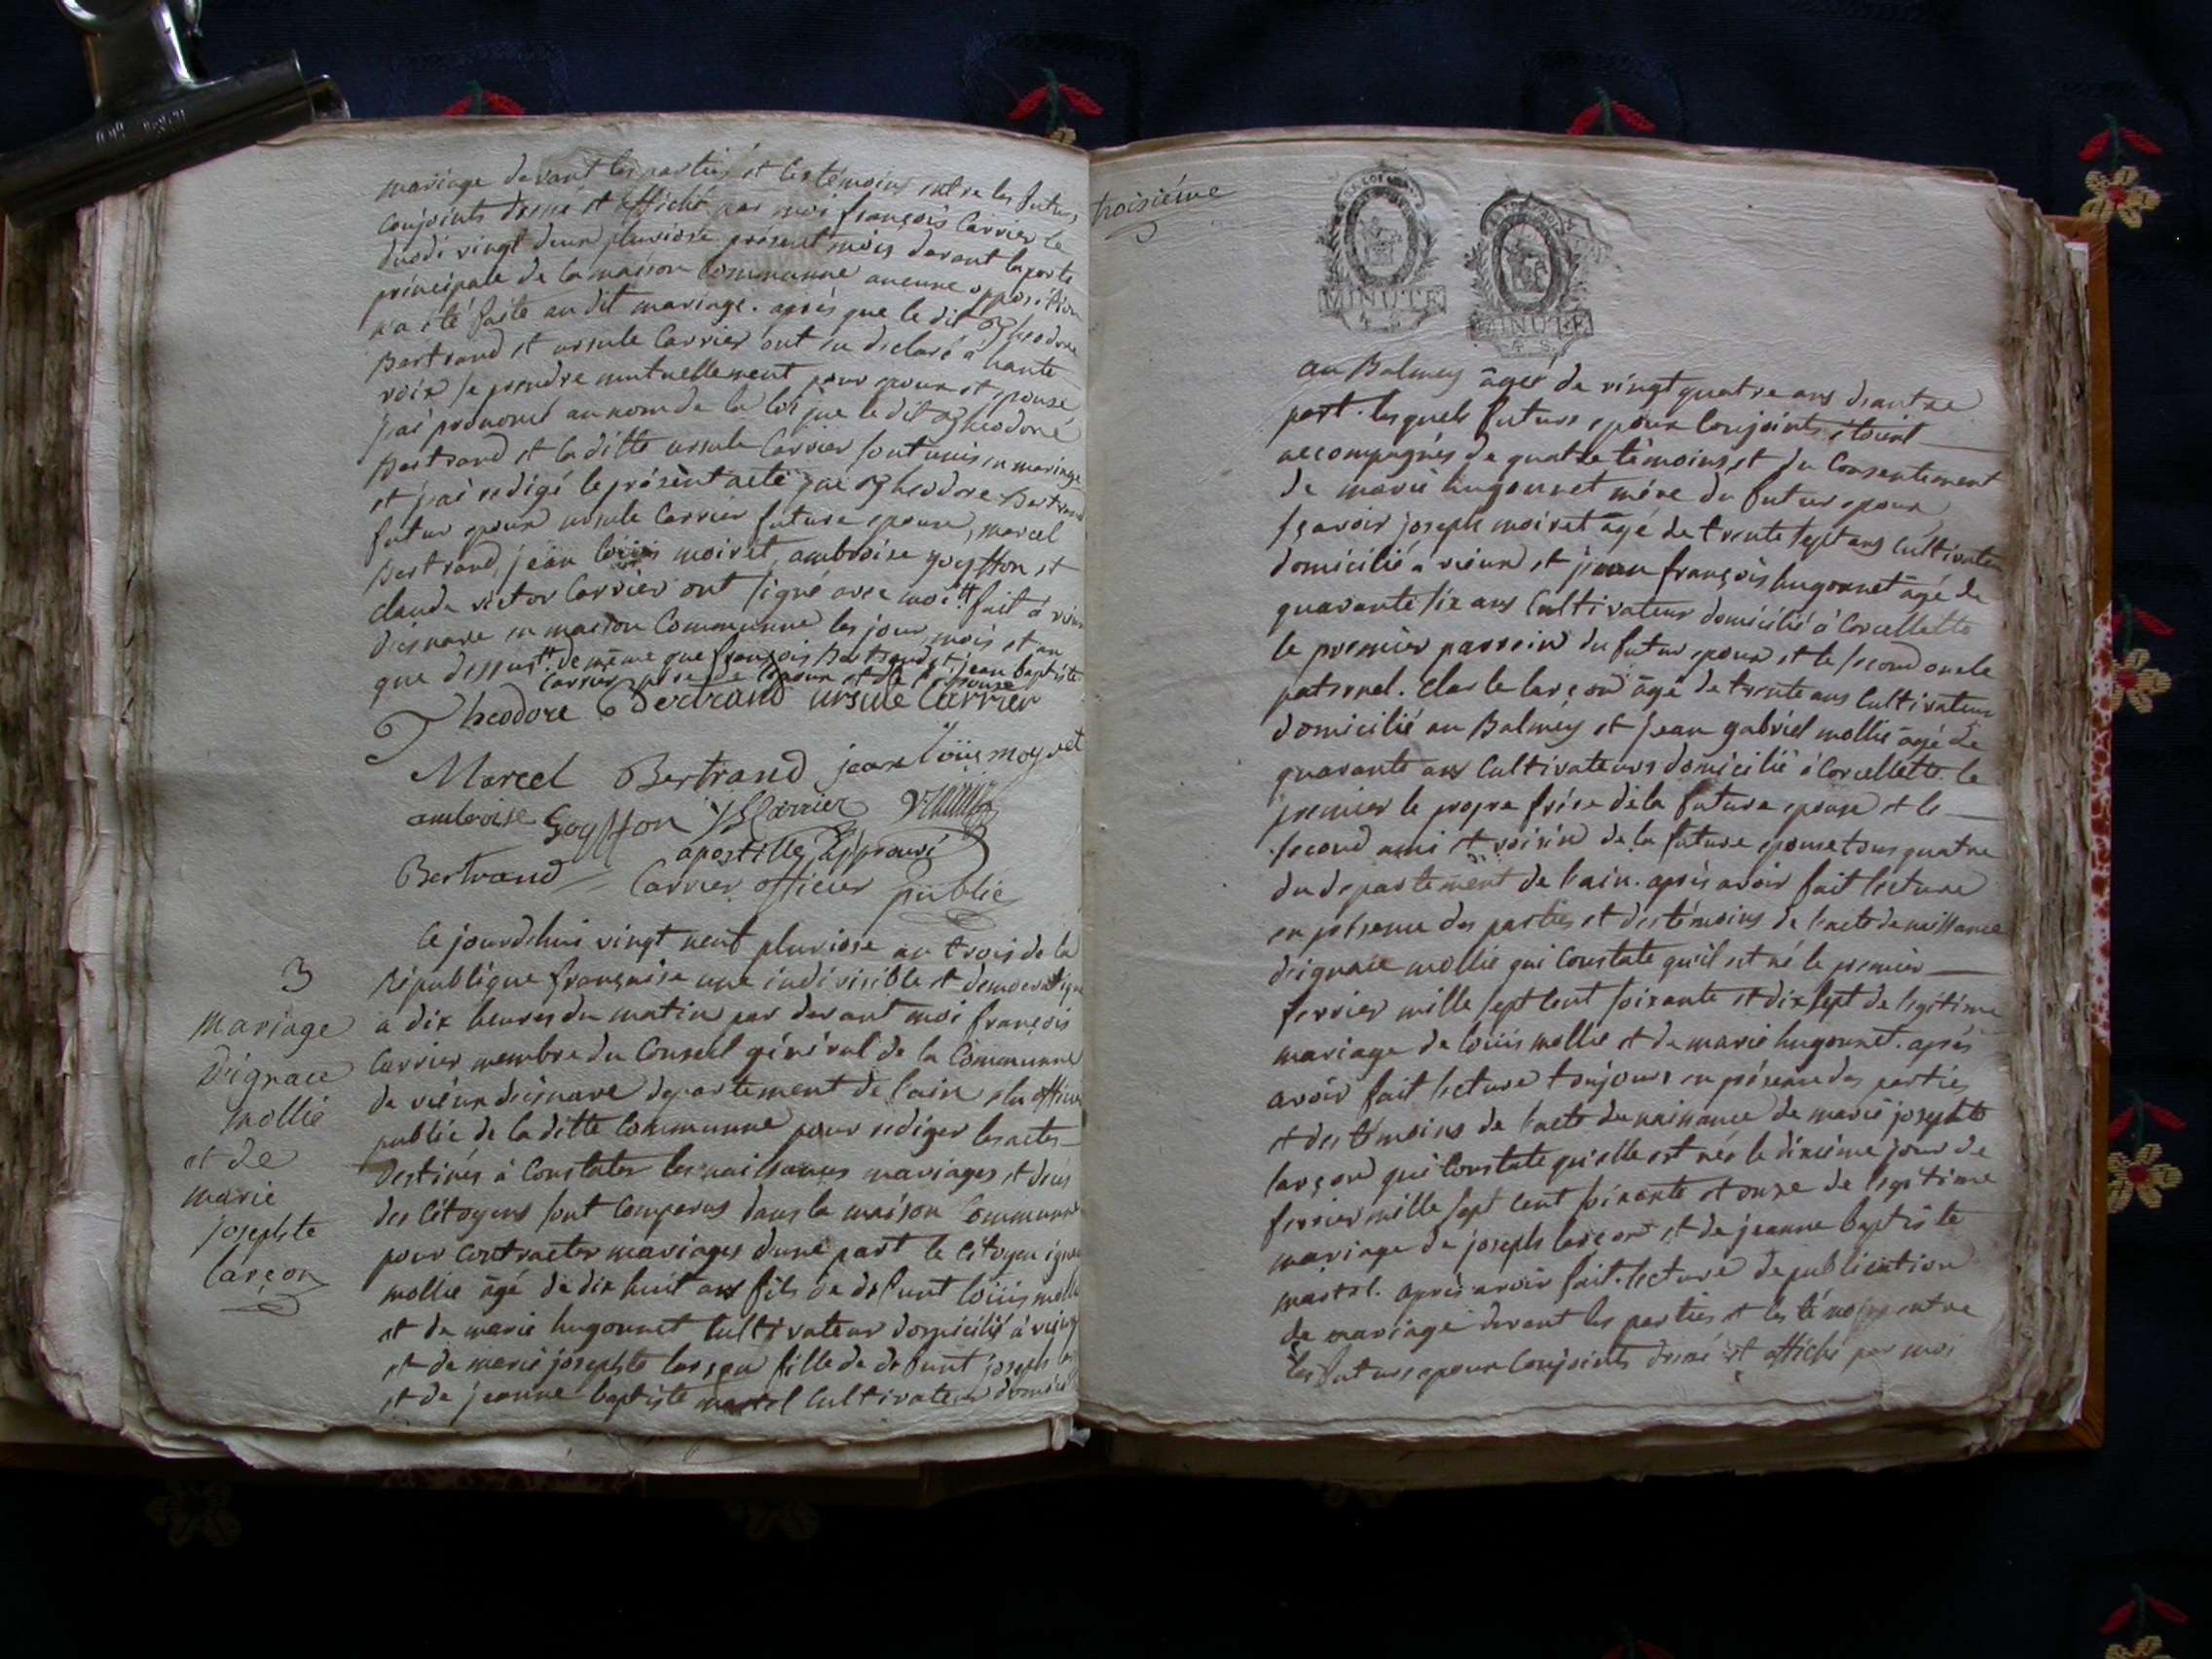 mariage devant les parties et les témoins entre les futurs
conjoints dressé et affiché par moi françois Carrier le
duodi vingt deux pluviose présent mois devant la porte
principale de la maison Communne aucunne opposition
n'a été faite au dit mariage. après que le dit Theodore
Bertrand et ursule Carrier ont eu declaré a haute
voix se prendre mutuellement pour epoux et epouse
j'ai prononcé au nom de la loi que le dit Theodore
Bertrand et la ditte ursule Carrier sont unis en mariage
et j'ai redigé le présent acte que Theodore Bertrand
futur epoux ursule Carrier future epouse, marcel
Bertrand, jean loüis moiret, ambroise goyffon et
claude victor Carrier ont signé avec moi tt fait à vieux
disenave en maison Communne les jour, mois et an
que dessus tt de même que françois Bertrand et jean baptiste
Carrier père de l'epoux et de l'epouse
Theodore Bertrand ursule Carrier
Marcel Bertrand jean loüis moyret
ambroise Goyffon JB Carrier
apostille approuvé
Bertrand Carrier officier public
3
Mariage
d'ignace
mollie
et de
marie
josephte
larçon
Ce jourdhui vingt neuf pluviose an trois de la
République françoise une indivisible et democratique
a dix heures du matin par devant moi françois
Carrier membre du Conseil général de la Communne
de vieux disenave departement de l'ain elu officier
public de la ditte Communne pour rediger les actes
destinés à Constater les naissances mariages et décès
des Citoyens sont Comparus dans la maison Communne
pour contracter mariages d'une part le Citoyen ignace
mollie âgé de dix huit ans fils de defunt loüis mollie
et de marie hugonnet Cultivateur domicilié à vieux
et de marie josephte larçon fille de defunt joseph
et de jeanne baptiste martel Cultivateur
troisiéme
MINUTE
4. S.
MINUTE
4. S.
au Balmey âgée de vingt quatre ans d'autre
part. lesquels futurs epoux Conjoints étoient
accompagnés de quatre témoins et du Consentement
de marie hugonnet mére du futur epoux
sçavoir joseph moiret âgé de trente sept ans Cultivateur
domicilié a vieux et jean françois hugonnet âgé de
quarante six ans Cultivateur domicilié à Corcellette
le premier parrein du futur epoux et le second oncle
paternel. larçon âgé de trente ans Cultivateur
domicilié au Balmey et jean gabriel mollie âgé de
quarante ans Cultivateurs domicilié à Corcellette. le
premier le propre frére de la future epouse et le
second ami et voisin de la future epouse tous quatre
du departement de l'ain. après avoir fait lecture
en présence des parties et des témoins de l'acte de naissance
d'ignace mollie qui Constate qu'il est né le premier
fevrier mille sept cent soixante et dix sept de legitime
mariage de loüis mollie et de marie hugonnet. après
avoir fait lecture toujours en présence des parties
et des témoins de l'acte de naissance de marie josephte
larçon qui Constate qu'elle est née le dixiéme jour de
fevrier mille sept cent soixante et onze de legitime
mariage de joseph larçon et de jeanne baptiste
martel. après avoir fait lecture de publication
de mariage devant les parties et les témoins entre
les futurs epoux Conjoints dressé et affiché par moi